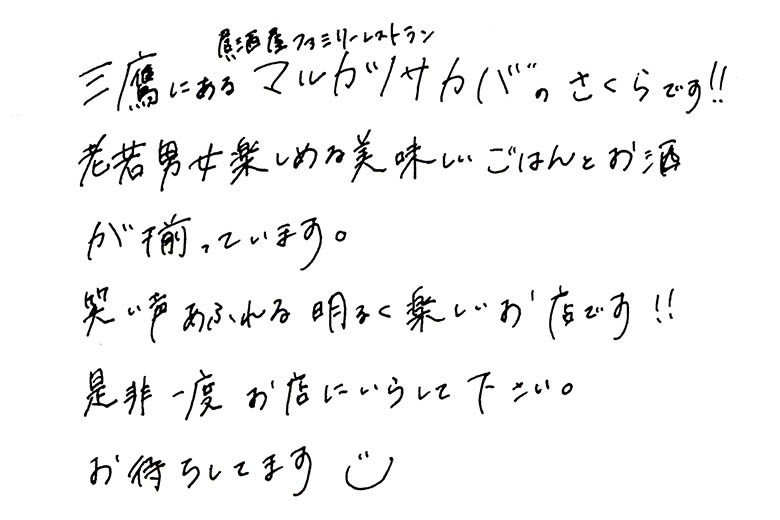 居酒屋ファミリーレストラン
三鷹にあるマルガツサカバのさくらです!!
老若男女楽しめる美味しいごはんとお酒
が揃っています。
笑い声あふれる明るく楽しいお店です!!
是非一度お店にいらして下さい。
お待ちしてます